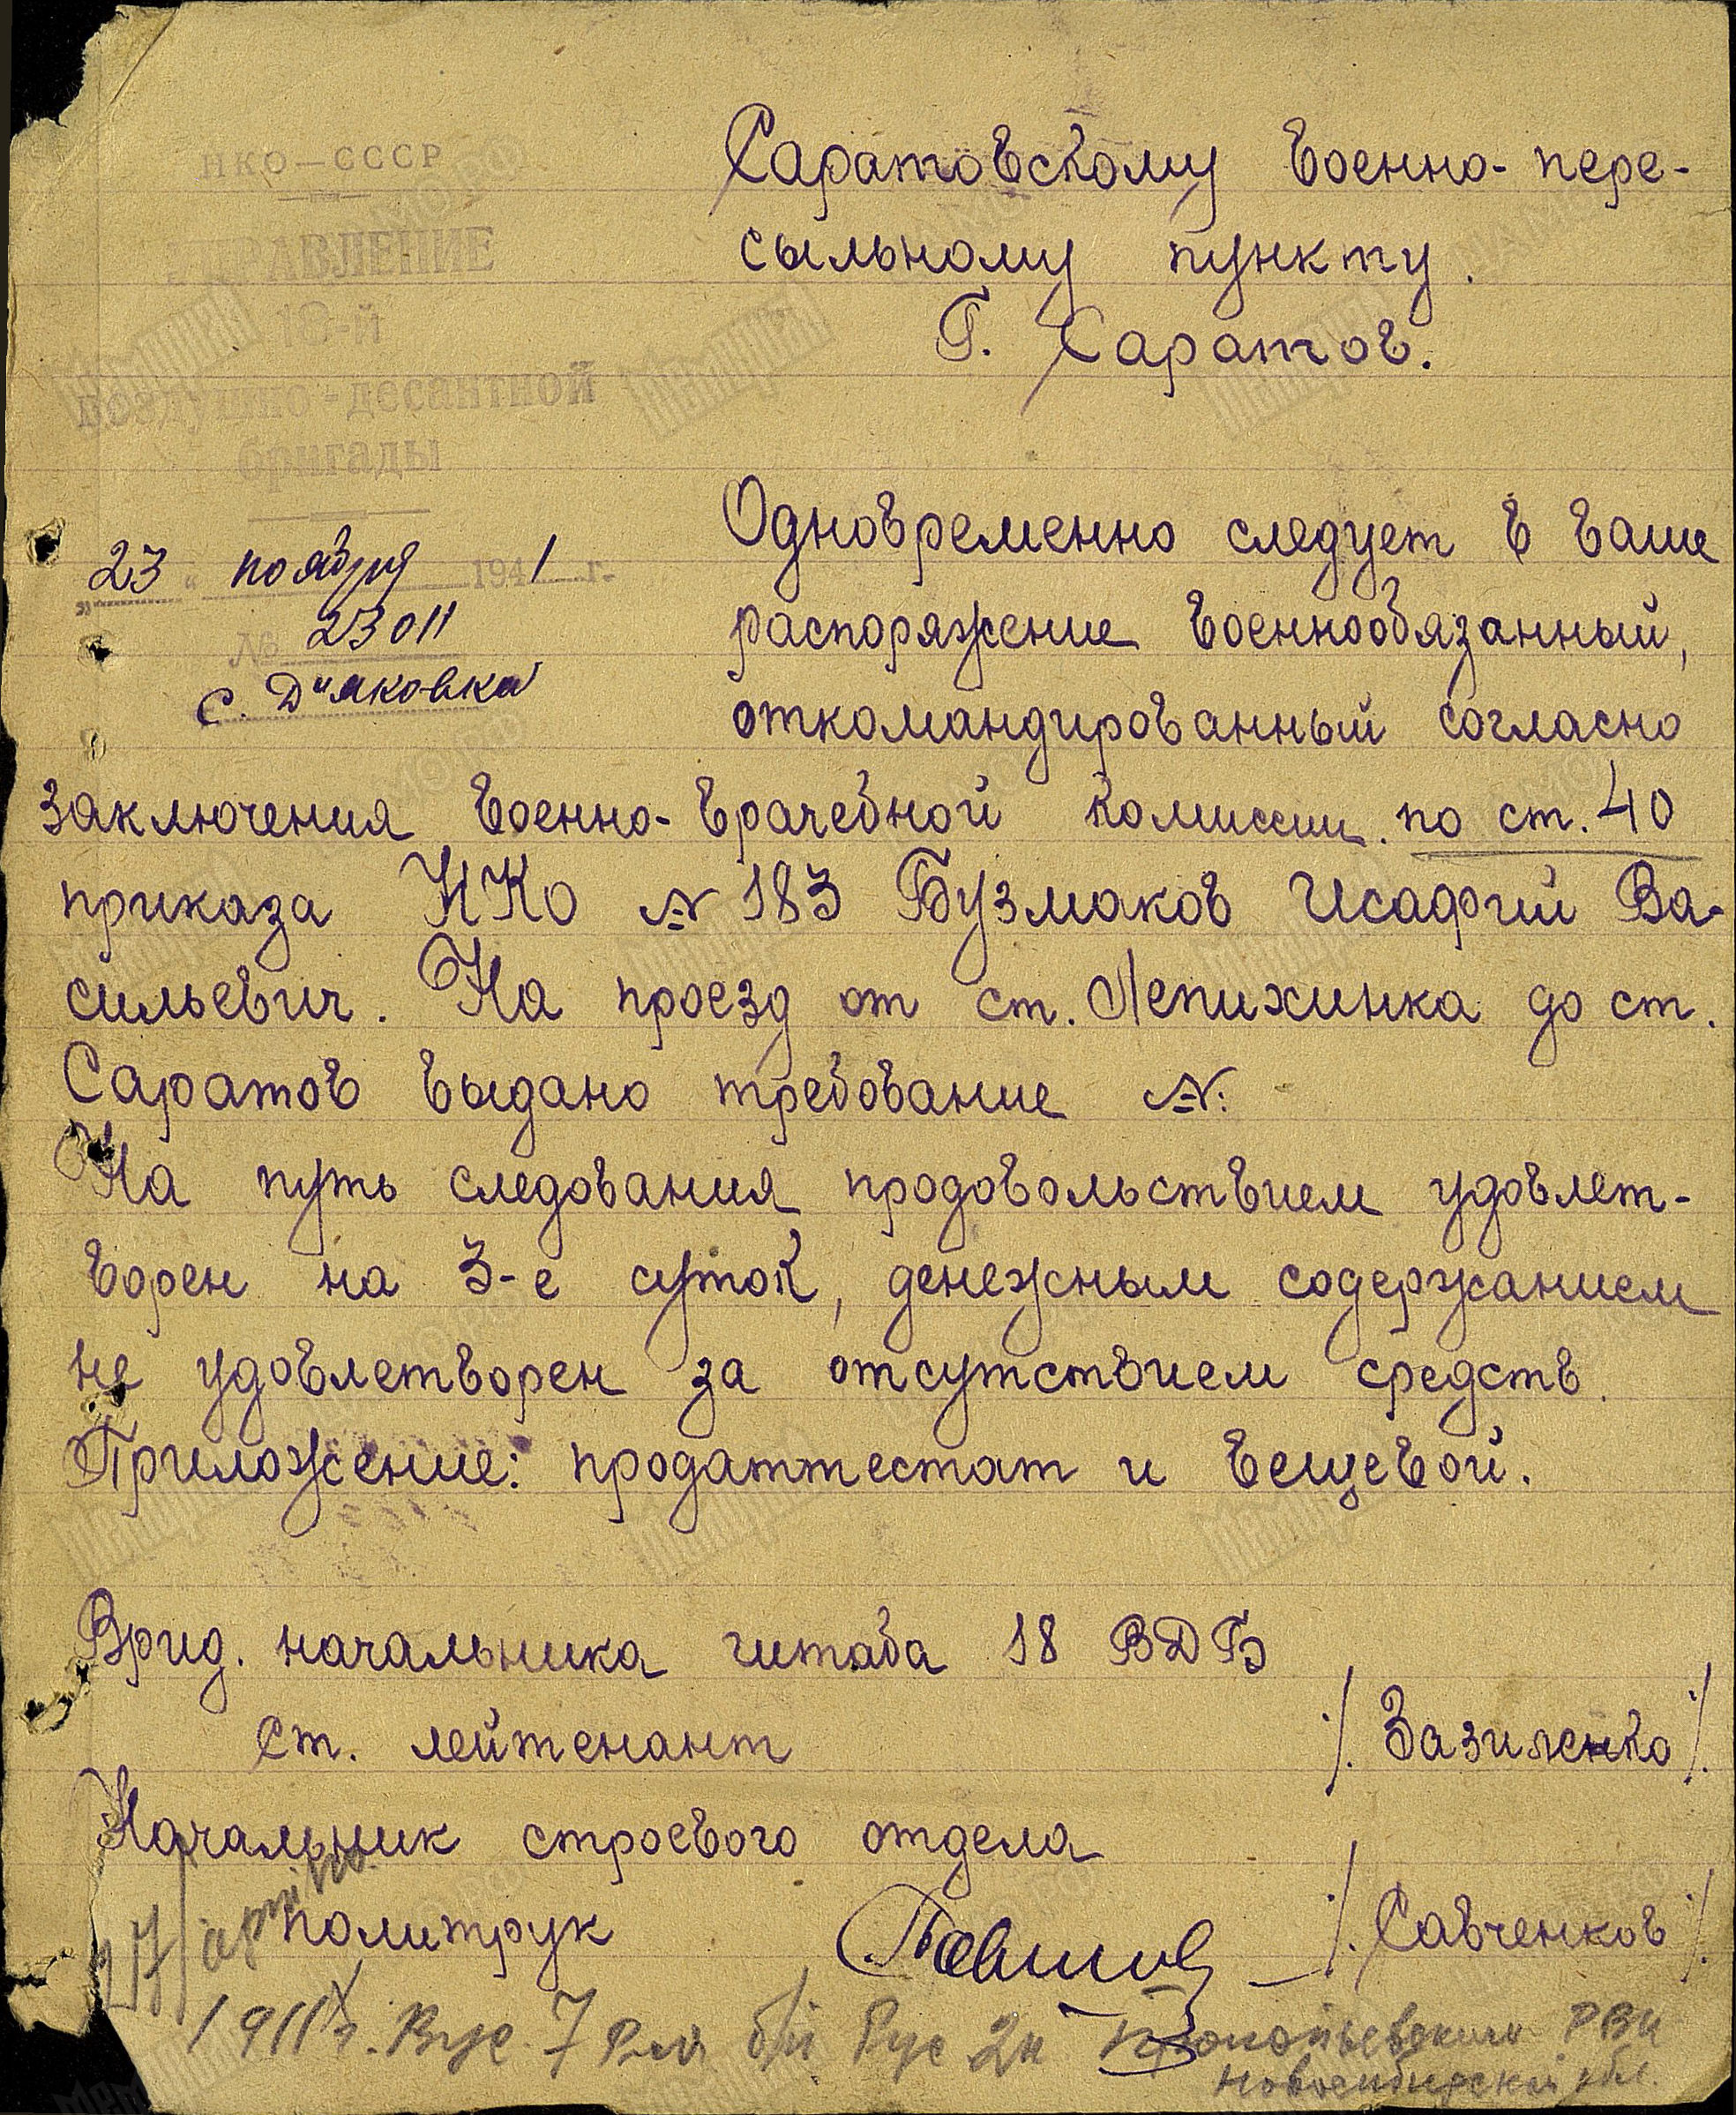 НКО—СССР
УПРАВЛЕНИЕ
18-й
воздушно-десантной
бригады
„23“ ноября 1941 г.
№ 23011
с. Дъяковка
Саратовскому военно-пере-
сыльному пункту.
Г. Саратов.
Одновременно следует в ваше
распоряжение военнообязанный,
откомандированный согласно
заключения военно-врачебной комиссии по ст. 40
приказа НКО № 183 Бузмаков Исафий Ва-
сильевич. На проезд от ст. Лепихинка до ст.
Саратов выдано требование №.
На путь следования продовольствием удовлет-
ворен на 3-е суток, денежным содержанием
не удовлетворен за отсутствием средств.
Приложение: продаттестат и вещевой.
Врид. начальника штаба 18 ВДБ
ст. лейтенант /. Зазиленко /.
Начальник строевого отдела
политрук /. Савченков /.
1911 г. Вус 7 б/п Рус 2к Прокопьевским РВК
Новосибирской обл.